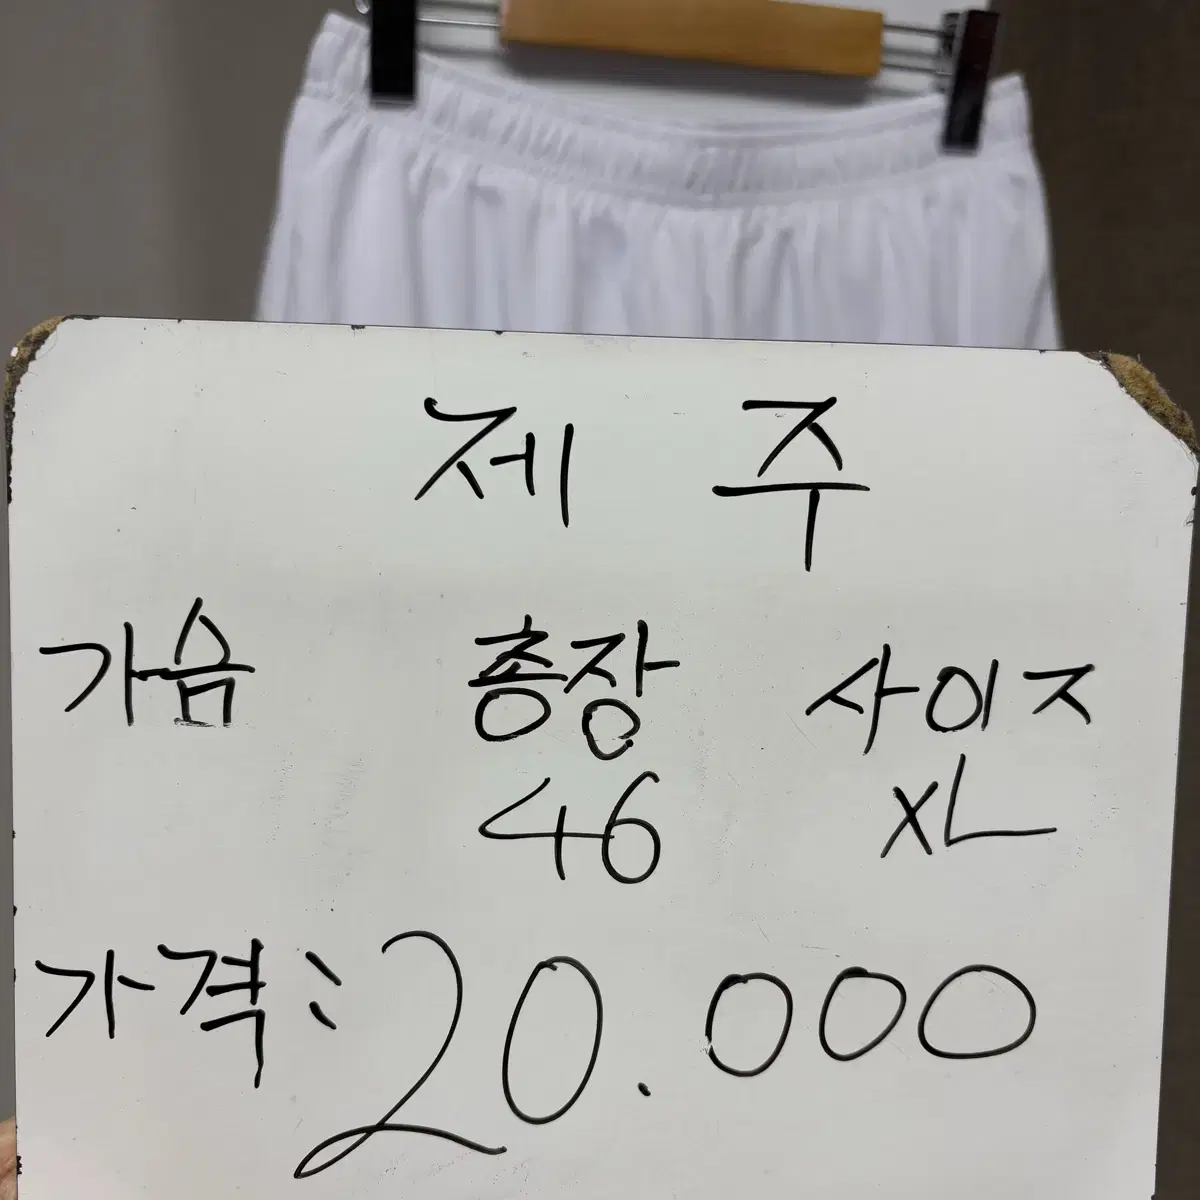 제 주
가슴 총장 사이즈
46 XL
가격: 20.000